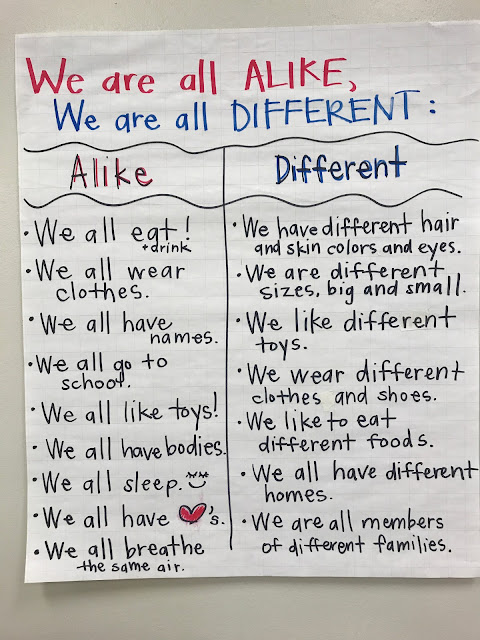 We are all ALIKE,
We are all DIFFERENT:
Alike
We all eat!
+drink
We all wear
clothes.
We all have
names.
We all go to
school.
We all like toys!
We all have bodies.
We all sleep.
We all have ♥'s.
We all breathe
the same air.
Different
We have different hair
and skin colors and eyes.
We are different
sizes, big and small.
We like different
toys.
We wear different
clothes and shoes.
We like to eat
different foods.
We all have different
homes.
We are all members
of different families.